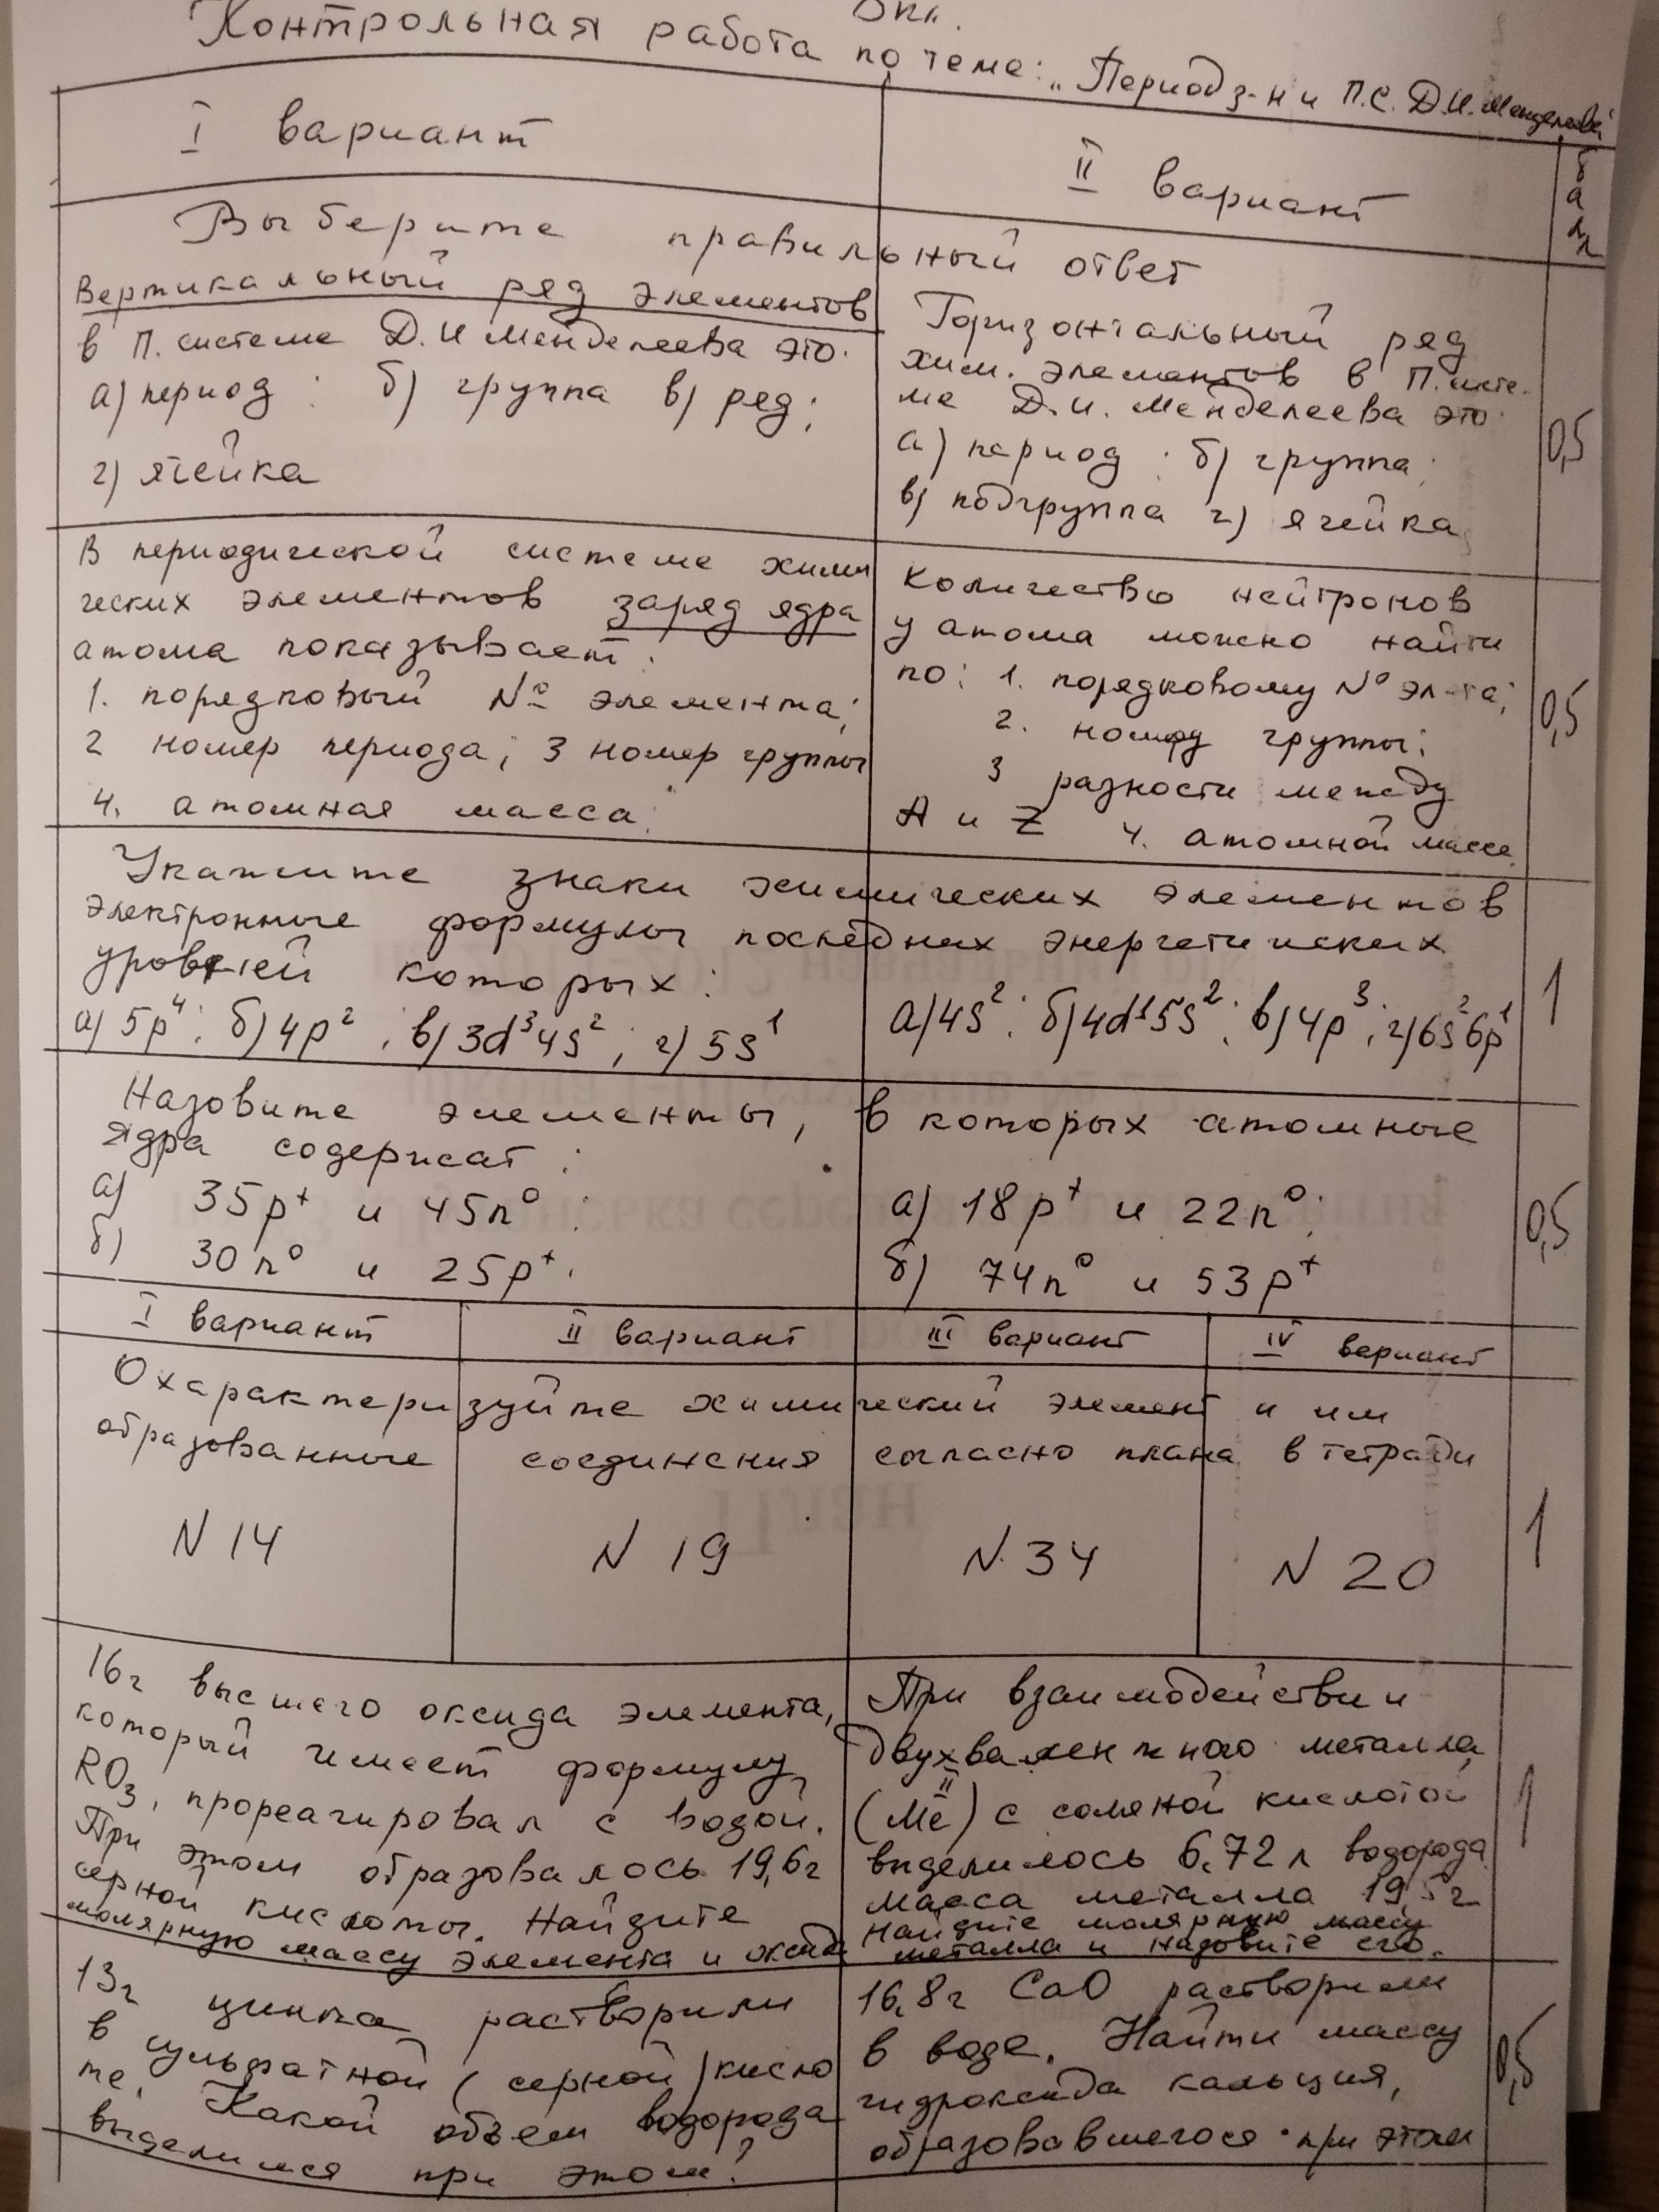 Контрольная работа по теме: „Период з-н и П.С. Д.И. Менделеева"
I вариант
II вариант
балл
Выберите правильный ответ
Вертикальный ряд элементов
в П. системе Д. И Менделеева это:
а) период : б) группа в) ряд;
г) ячейка
Горизонтальный ряд
хим. элементов в П. систе-
ме Д. И. Менделеева это:
а) период : б) группа;
в) подгруппа г) ячейка
0,5
В периодической системе хими
ческих элементов заряд ядра
атома показывает:
1. порядковый № элемента;
2 номер периода; 3 номер группы
4. атомная масса.
Количество нейтронов
у атома можно найти
по: 1. порядковому № эл-та;
2. номеру группы;
3 разности между
A и Z 4. атомной массе
0,5
Укажите знаки химических элементов
электронные формулы последних энергетических
уровней которых:
а) 5p⁴; б) 4p²; в) 3d³4s²; г) 5s¹
а) 4s²; б) 4d¹5s²; в) 4p³; г) 6s²6p¹
1
Назовите элементы, в которых атомные
ядра содержат:
а) 35p⁺ и 45n⁰;
б) 30n⁰ и 25p⁺.
а) 18p⁺ и 22n⁰;
б) 74n⁰ и 53p⁺
0,5
I вариант
II вариант
III вариант
IV вариант
Охарактеризуйте химический элемент и им
образованные соединения согласно плана в тетради
N 14
N 19
N. 34
N 20
1
16г высшего оксида элемента,
который имеет формулу
RO₃, прореагировал с водой.
При этом образовалось 19,6г
серной кислоты. Найдите
молярную массу элемента и оксида
При взаимодействии
двухвалентного металла
(Me) с соляной кислотой
выделилось 6,72 л водорода
масса металла 19,5г
Найдите молярную массу
металла и назовите его.
1
13г цинка растворили
в сульфатной (серной) кисло
те. Какой объем водорода
выделился при этом?
16,8г CaO растворили
в воде. Найти массу
гидроксида кальция,
образовавшегося при этом
0,5